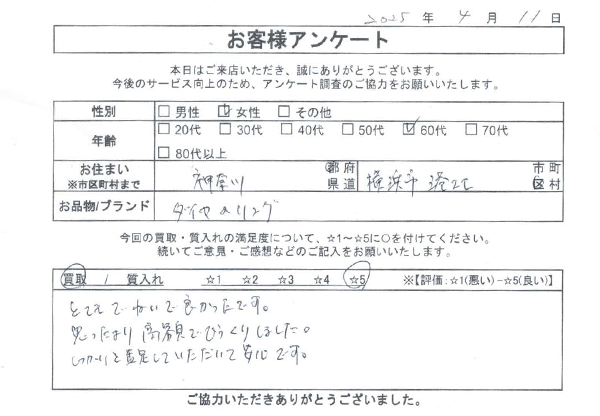 2025 年 4 月 11 日
お客様アンケート
本日はご来店いただき、誠にありがとうございます。
今後のサービス向上のため、アンケート調査のご協力をお願いいたします。
性別 □ 男性 ☑ 女性 □ その他
年齢 □ 20代 □ 30代 □ 40代 □ 50代 ☑ 60代 □ 70代
□ 80代以上
お住まい ※市区町村まで 神奈川 都府県道 横浜市 港北 市町区村
お品物/ブランド ダイヤのリング
今回の買取・質入れの満足度について、☆1～☆5に○を付けてください。
続いてご意見・ご感想などのご記入をお願いいたします。
買取 / 質入れ ☆1 ☆2 ☆3 ☆4 ☆5 ※【評価:☆1(悪い)-☆5(良い)】
良かったです。
思ったより高額でびっくりしました。
していただいて安心です。
ご協力いただきありがとうございました。